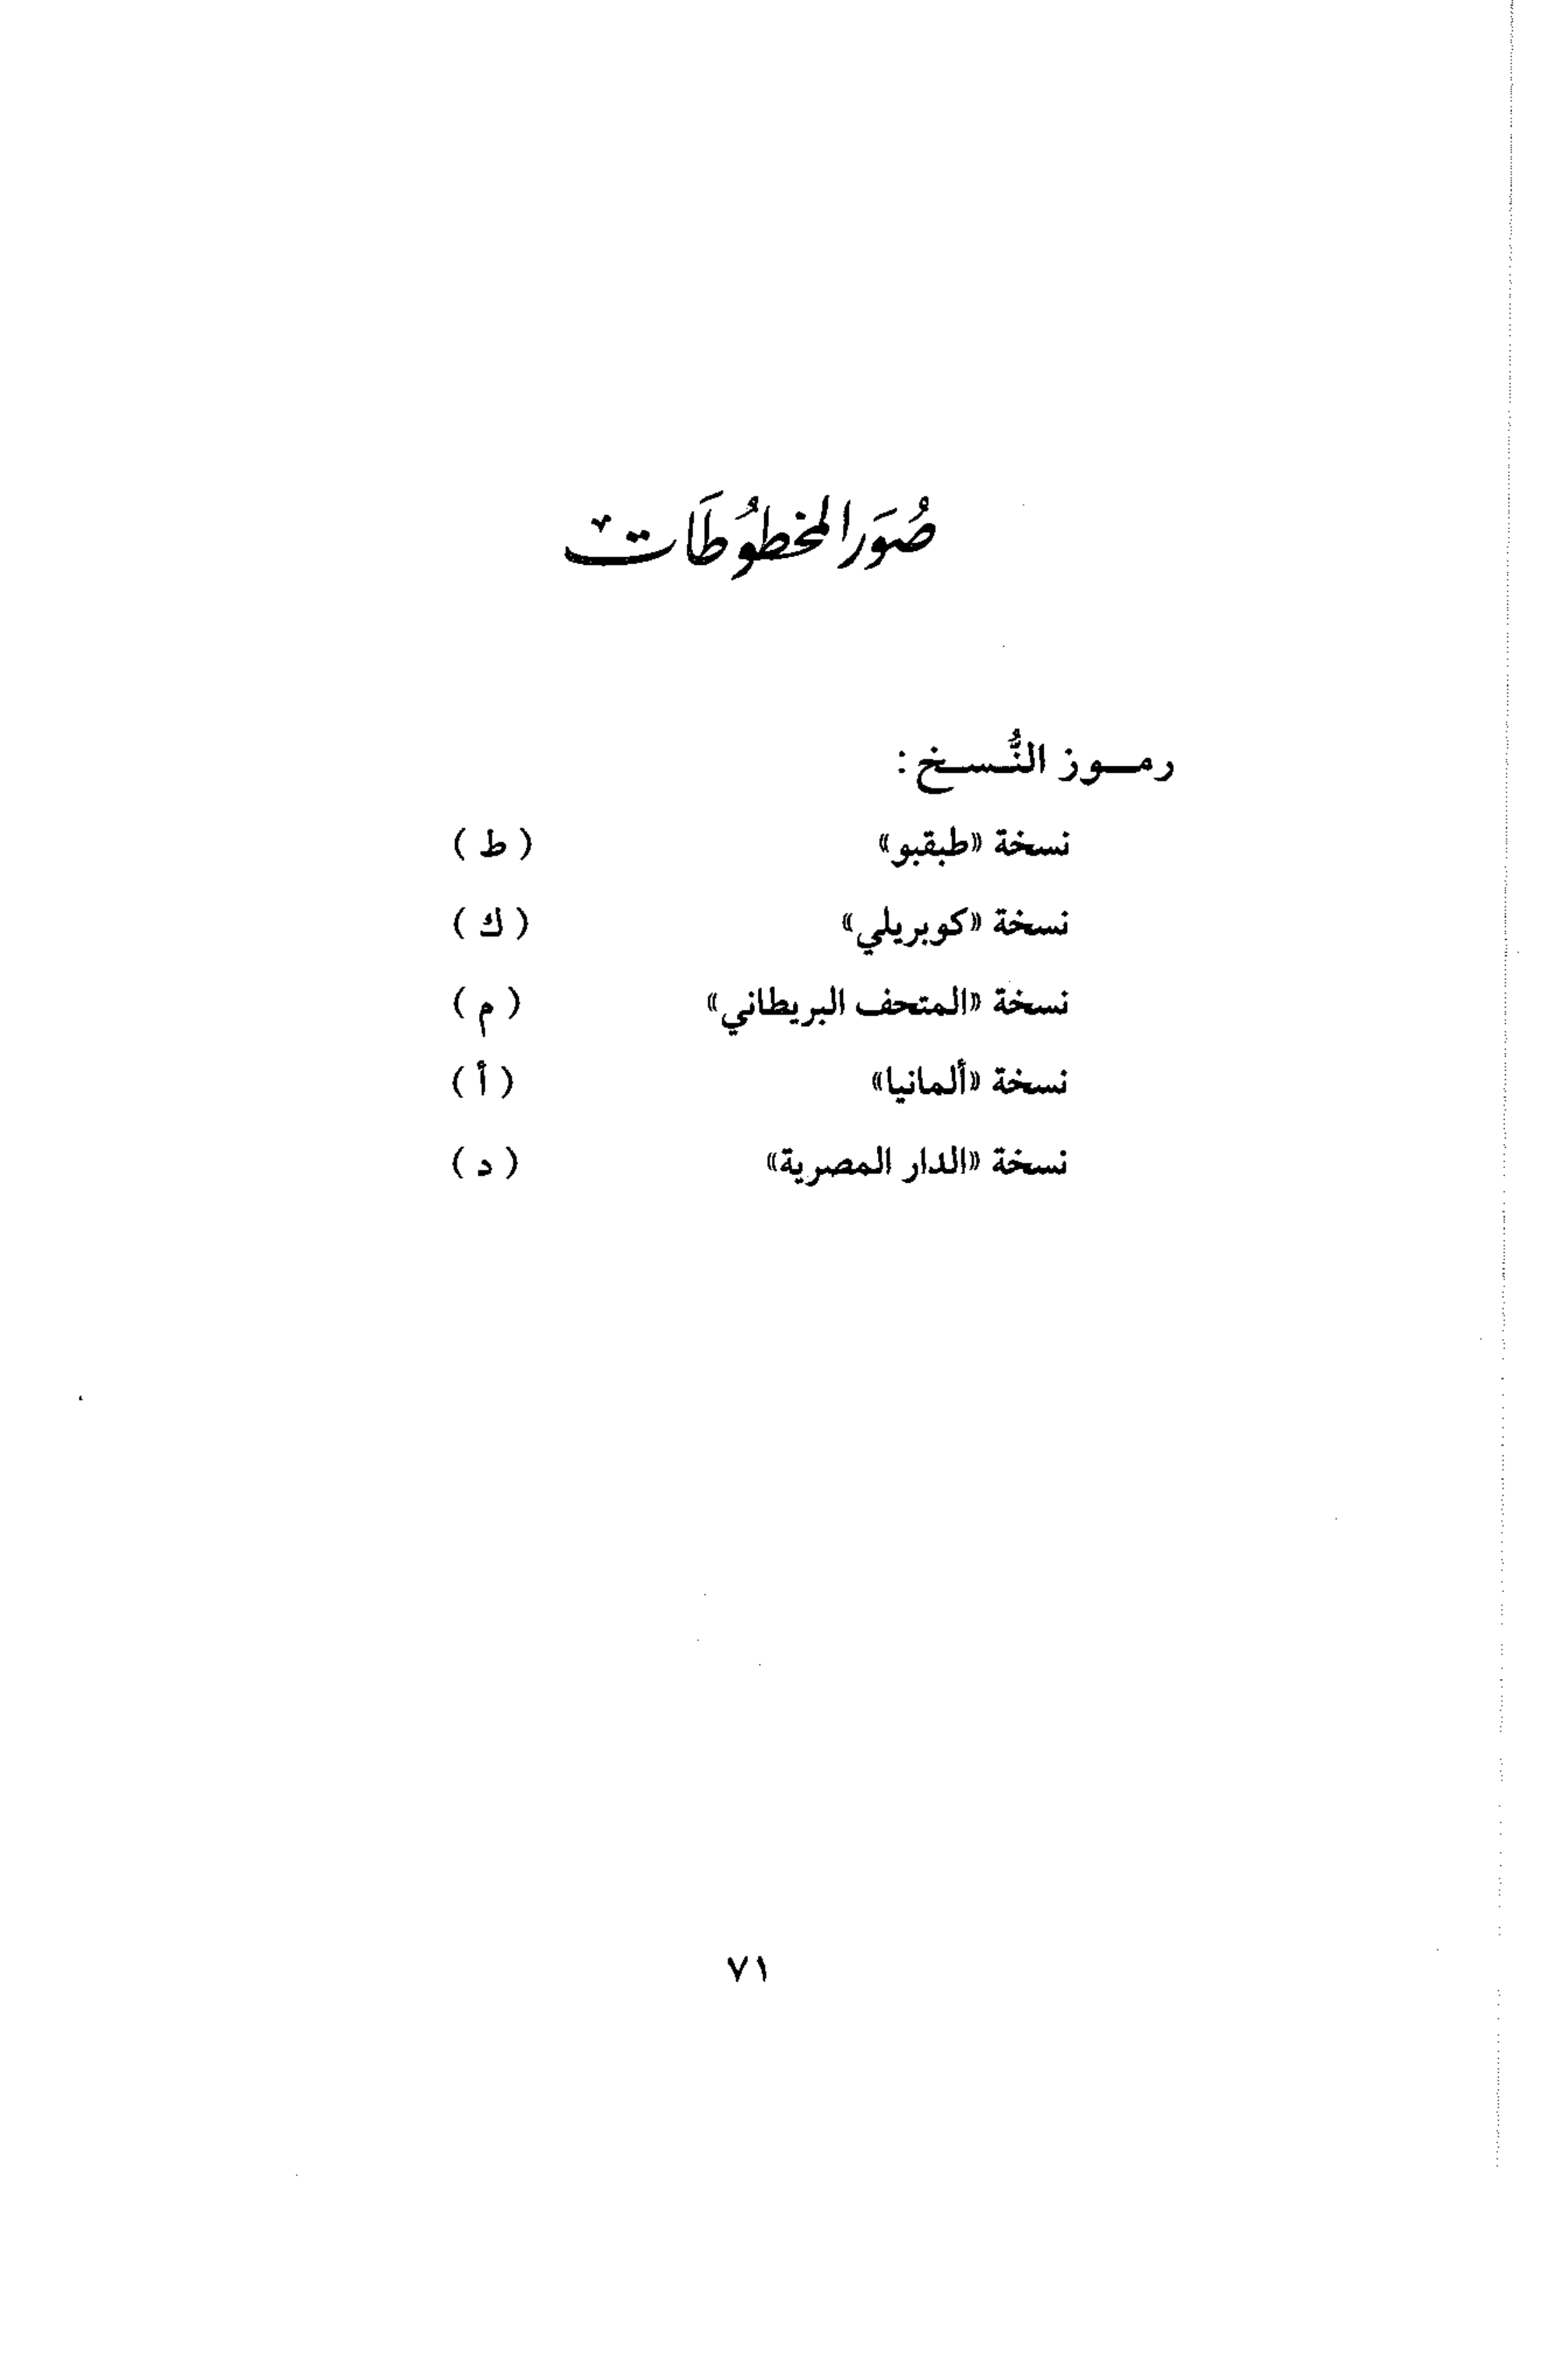 صُوَر المخطُوطَات
رمــوز النُّـسـخ:
نسخة «طبقبو» ( ط )
نسخة «كوبريلي» ( ك )
نسخة «المتحف البريطاني» ( م )
نسخة «ألمانيا» ( أ )
نسخة «الدار المصرية» ( د )
٧١